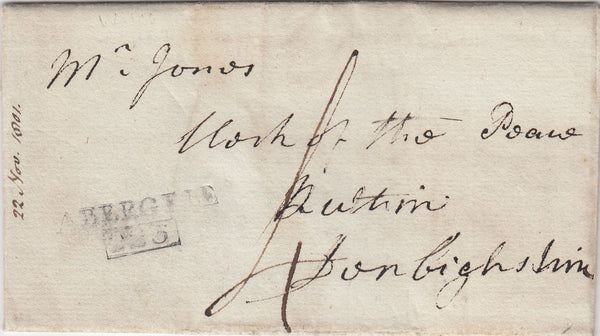 Mr. Jones
Clerk of the Peace
Ruthin
Denbighshire
ABERGELE
225
22 Nov. 1801.